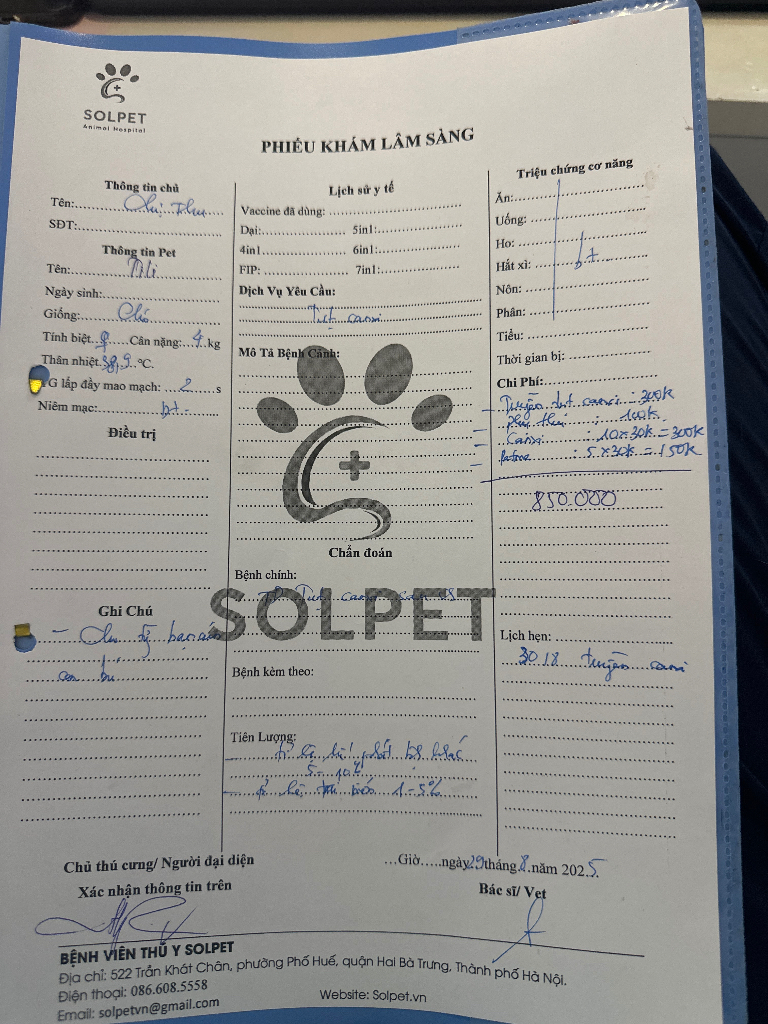 SOLPET
Animal Hospital
PHIẾU KHÁM LÂM SÀNG
Thông tin chủ
Tên: Chị Thu
SĐT:
Thông tin Pet
Tên: Mli
Ngày sinh:
Giống: Chó
Tính biệt: ♀ Cân nặng: 4 kg
Thân nhiệt 38,9 °C.
TG lấp đầy mao mạch: 2 s
Niêm mạc: bt
Điều trị
Ghi Chú
- Chu kỳ
con bú
Lịch sử y tế
Vaccine đã dùng:
Dại: 5in1:
4in1 6in1:
FIP: 7in1:
Dịch Vụ Yêu Cầu:
Tụt canxi
Mô Tả Bệnh Cảnh:
Chẩn đoán
Bệnh chính:
Tụt canxi
SOLPET
Bệnh kèm theo:
Tiên Lượng:
5 - 10%
1 - 5%
Triệu chứng cơ năng
Ăn:
Uống:
Ho:
Hắt xì: bt
Nôn:
Phân:
Tiểu:
Thời gian bị:
Chi Phí:
- Truyền tụt canxi : 300k
- : 100k
- Canxi : 10 x 30k = 300k
- : 5 x 30k = 150k
850.000
Lịch hẹn:
30/8 truyền canxi
Chủ thú cưng/ Người đại diện
Xác nhận thông tin trên
...Giờ.....ngày 29 tháng 8 năm 2025
Bác sĩ/ Vet
BỆNH VIỆN THÚ Y SOLPET
Địa chỉ: 522 Trần Khát Chân, phường Phố Huế, quận Hai Bà Trưng, Thành phố Hà Nội.
Điện thoại: 086.608.5558
Email: solpetvn@gmail.com
Website: Solpet.vn